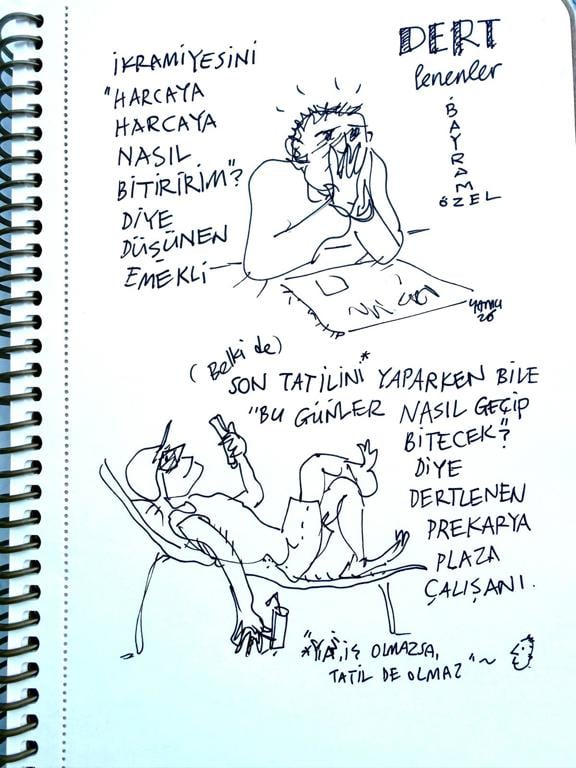 DERT
lenenler
BAYRAM
ÖZEL
İKRAMİYESİNİ
"HARCAYA
HARCAYA
NASIL
BİTİRİRİM"?
DİYE
DÜŞÜNEN
EMEKLİ
(Belki de)
SON TATİLİNİ* YAPARKEN BİLE
"BU GÜNLER NASIL GEÇİP
BİTECEK"?
DİYE
DERTLENEN
PREKARYA
PLAZA
ÇALIŞANI.
*"YA, İŞ OLMAZSA,
TATİL DE OLMAZ"~